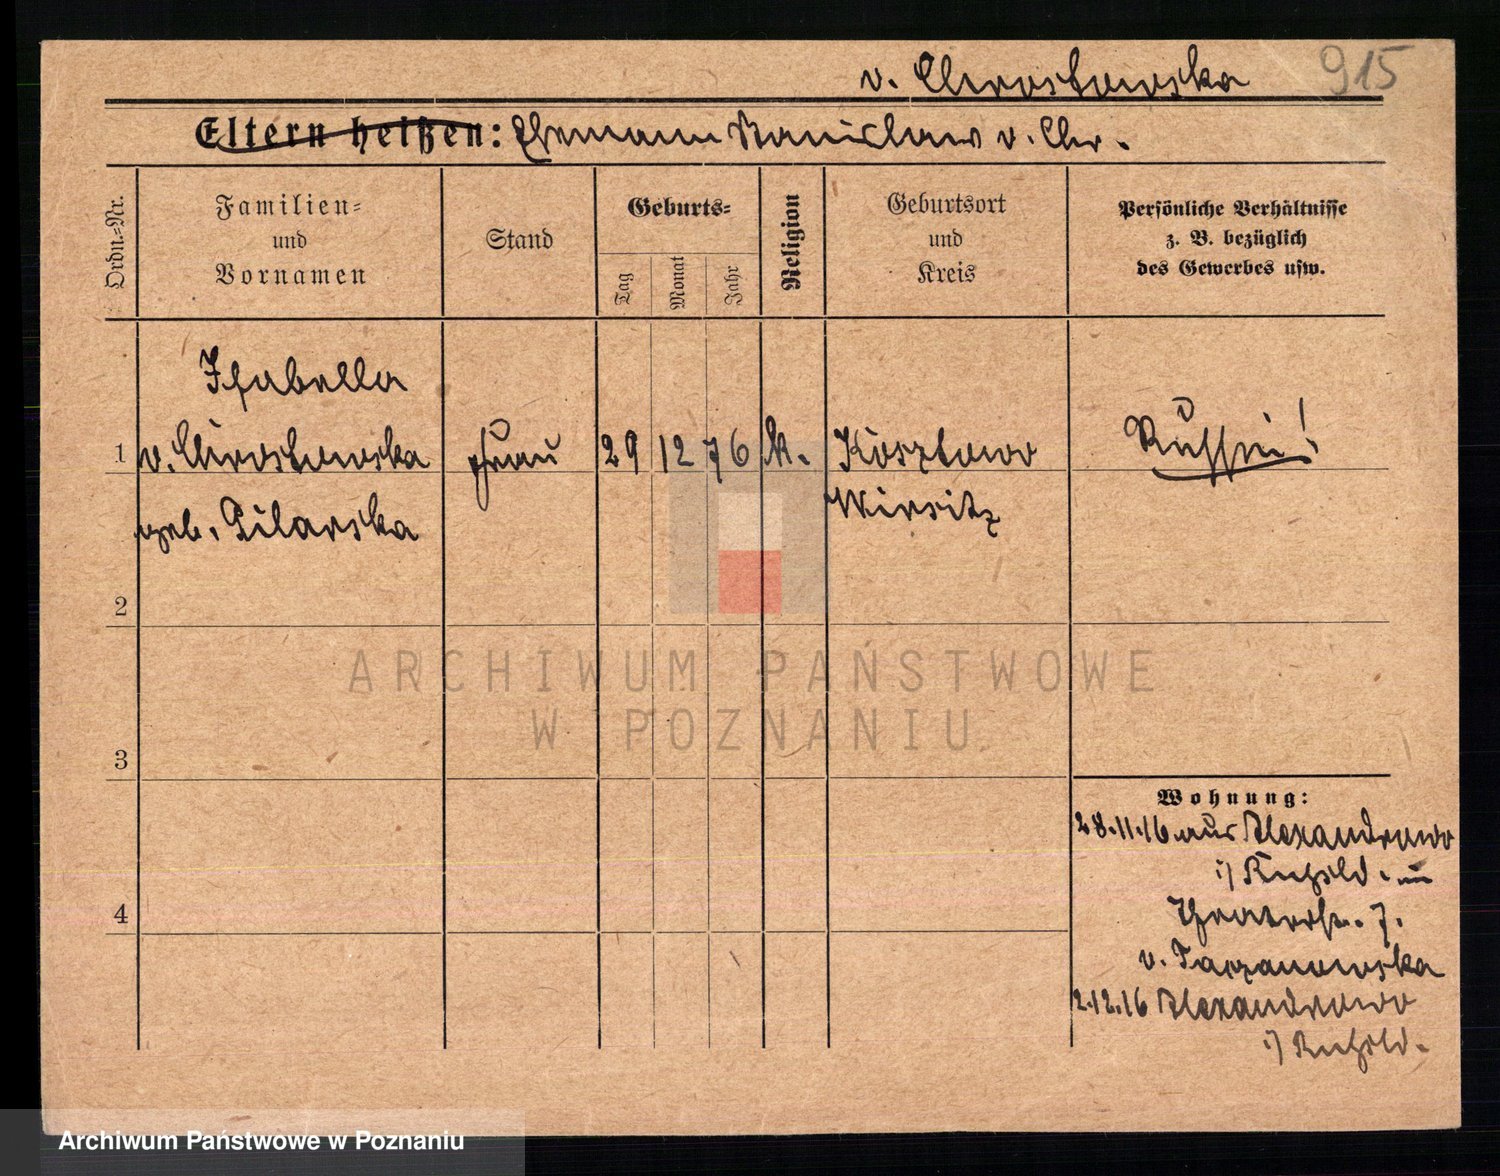 v. Chrostowska 915
Eltern heißen: Ehemann Stanislaw v. Chr.
Ordn.-Nr.
Familien-
und
Vornamen
Stand
Geburts-
Tag
Monat
Jahr
Religion
Geburtsort
und
Kreis
Persönliche Verhältnisse
z. B. bezüglich
des Gewerbes usw.
Isabella
1 v. Chrostowska Frau 29 12 76 k. Kosztowo Russin!
geb. Pilarska Wirsitz
2
3
4
Wohnung:
28.11.16 aus Alexandrowo
i/ Rußld.
Theaterstr. 7.
v. Taczanowska
2.12.16 Alexandrowo
i/ Rußld.
ARCHIWUM PAŃSTWOWE
W POZNANIU
Archiwum Państwowe w Poznaniu